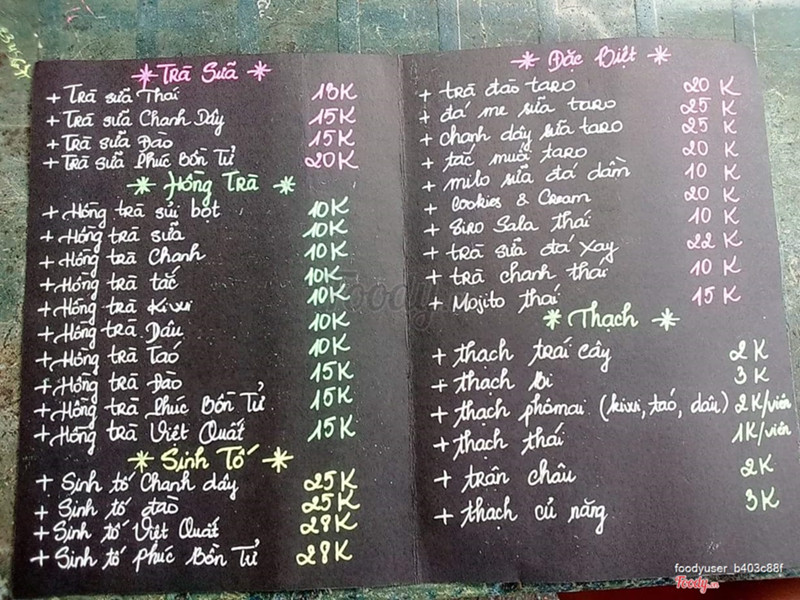 Trà Sữa
+ Trà sữa Thái 18K
+ Trà sữa Chanh Dây 15K
+ Trà sữa Đào 15K
+ Trà sữa Phúc Bồn Tử 20K
Hồng Trà
+ Hồng trà sủi bọt 10K
+ Hồng trà sữa 10K
+ Hồng trà Chanh 10K
+ Hồng trà tắc 10K
+ Hồng trà Kiwi 10K
+ Hồng trà Dâu 10K
+ Hồng trà Táo 10K
+ Hồng trà Đào 15K
+ Hồng trà Phúc Bồn Tử 15K
+ Hồng trà Việt Quất 15K
Sinh Tố
+ Sinh tố Chanh dây 25K
+ Sinh tố đào 25K
+ Sinh tố Việt Quất 28K
+ Sinh tố Phúc Bồn Tử 28K
Đặc Biệt
+ trà đào taro 20 K
+ đá me sữa taro 25 K
+ chanh dây sữa taro 25 K
+ tắc muối taro 20 K
+ milo sữa đá dầm 10 K
+ Cookies & Cream 20 K
+ Siro Sala thái 10 K
+ trà sữa đá xay 22 K
+ trà chanh thái 10 K
+ Mojito thái 15 K
Thạch
+ thạch trái cây 2K
+ thạch bi 3K
+ thạch phômai (kiwi, táo, dâu) 2K/viên
+ thạch thái 1K/viên
+ trân châu 2K
+ thạch củ năng 3K
Foody
foodyuser_b403c88f
Foody.vn